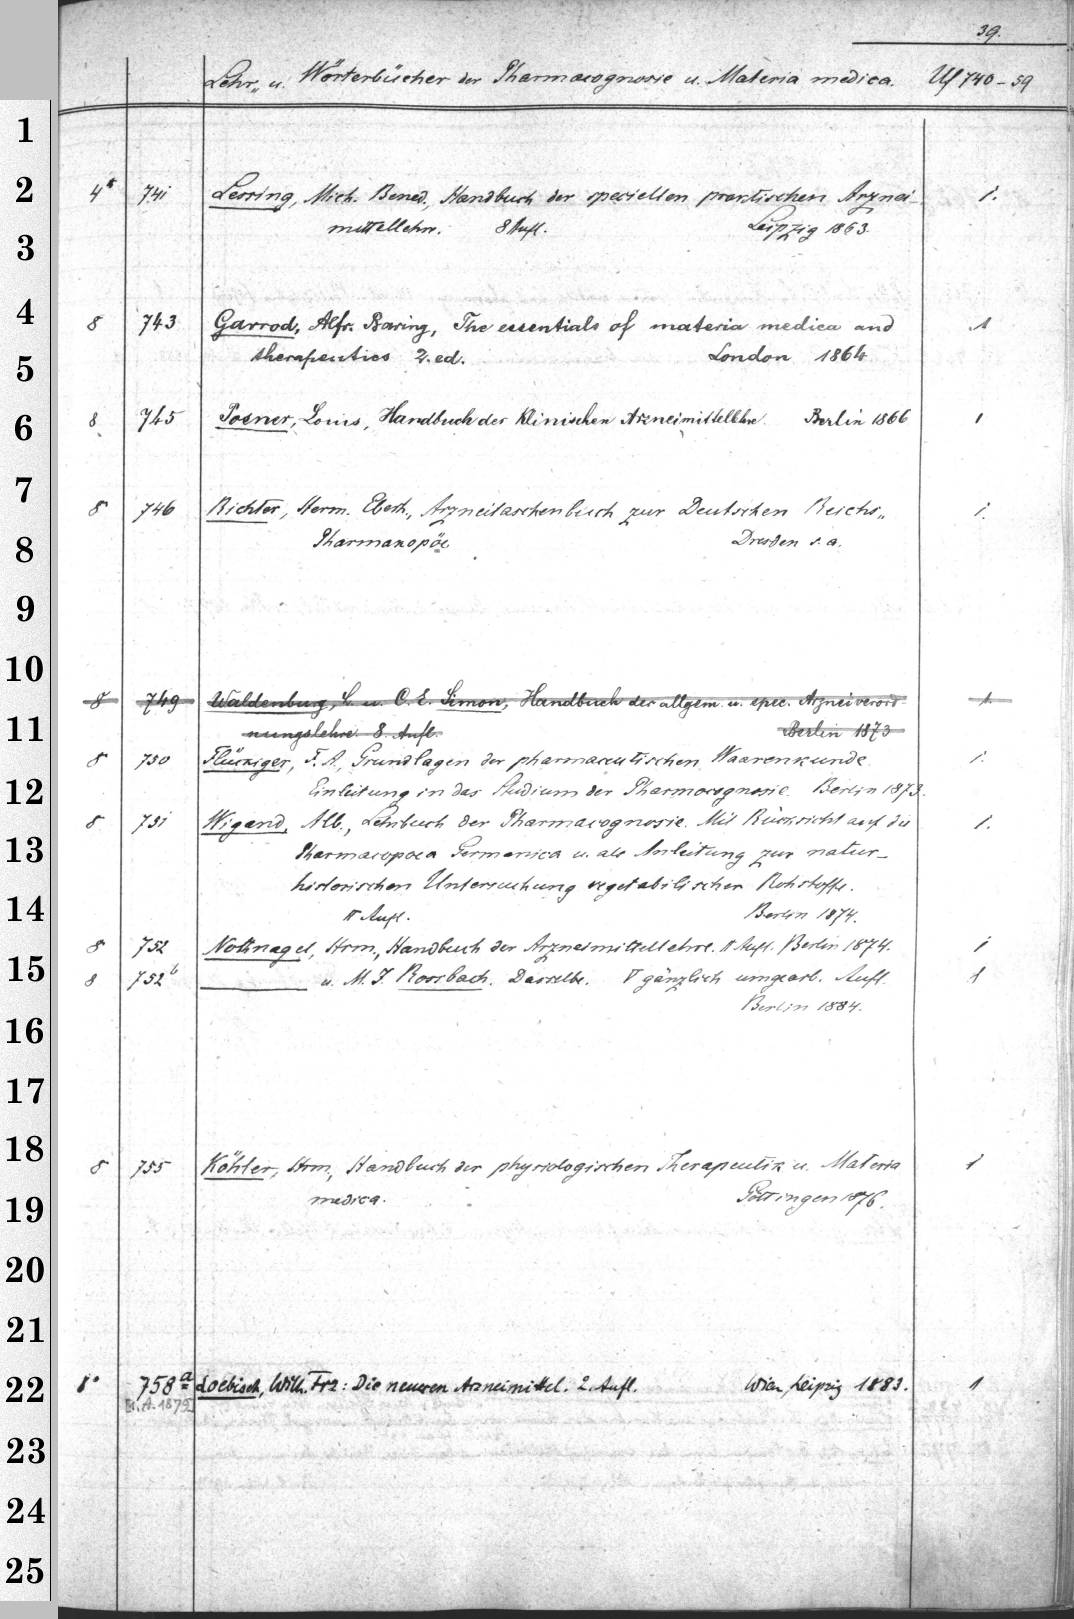 39.
Lehr- u. Wörterbücher der Pharmacognosie u. Materia medica. Uf 740-59
1
2
4° 741 Lessing, Mich. Bened., Handbuch der speciellen praktischen Arznei- 1.
mittellehre. 8 Aufl. Leipzig 1863.
3
4
8 743 Garrod, Alfr. Baring, The essentials of materia medica and 1
therapeutics 2. ed. London 1864
5
6
8. 745 Posner, Louis, Handbuch der klinischen Arzneimittellehre. Berlin 1866 1
7
8 746 Richter, Herm. Eberh., Arzneitaschenbuch zur Deutschen Reichs- 1.
8
Pharmakopöe Dresden s. a.
9
10
8 749 Waldenburg, L. u. C. E. Simon, Handbuch der allgem. u. spec. Arzneiverord- 1.
11
nungslehre. 8. Aufl. Berlin 1873
8 750 Flückiger, F. A., Grundlagen der pharmaceutischen Waarenkunde. 1.
12
Einleitung in das Studium der Pharmacognosie. Berlin 1873.
8 751 Wigand, Alb., Lehrbuch der Pharmacognosie. Mit Rücksicht auf die 1.
13
Pharmacopoea Germanica u. als Anleitung zur natur-
historischen Untersuchung vegetabilischer Rohstoffe.
14
II Aufl. Berlin 1874.
8 752 Nothnagel, Hrm., Handbuch der Arzneimittellehre. II Aufl. Berlin 1874. 1
15
8 752b ——— u. M. J. Rossbach. Dasselbe. V gänzlich umgearb. Aufl. 1
Berlin 1884.
16
17
18
8 755 Köhler, Hrm., Handbuch der physiologischen Therapeutik u. Materia 1
19
medica. Göttingen 1876.
20
21
22
8° 758a Loebisch, Wilh. Frz: Die neueren Arzneimittel. 2. Aufl. Wien, Leipzig 1883. 1
[1. A. 1879]
23
24
25